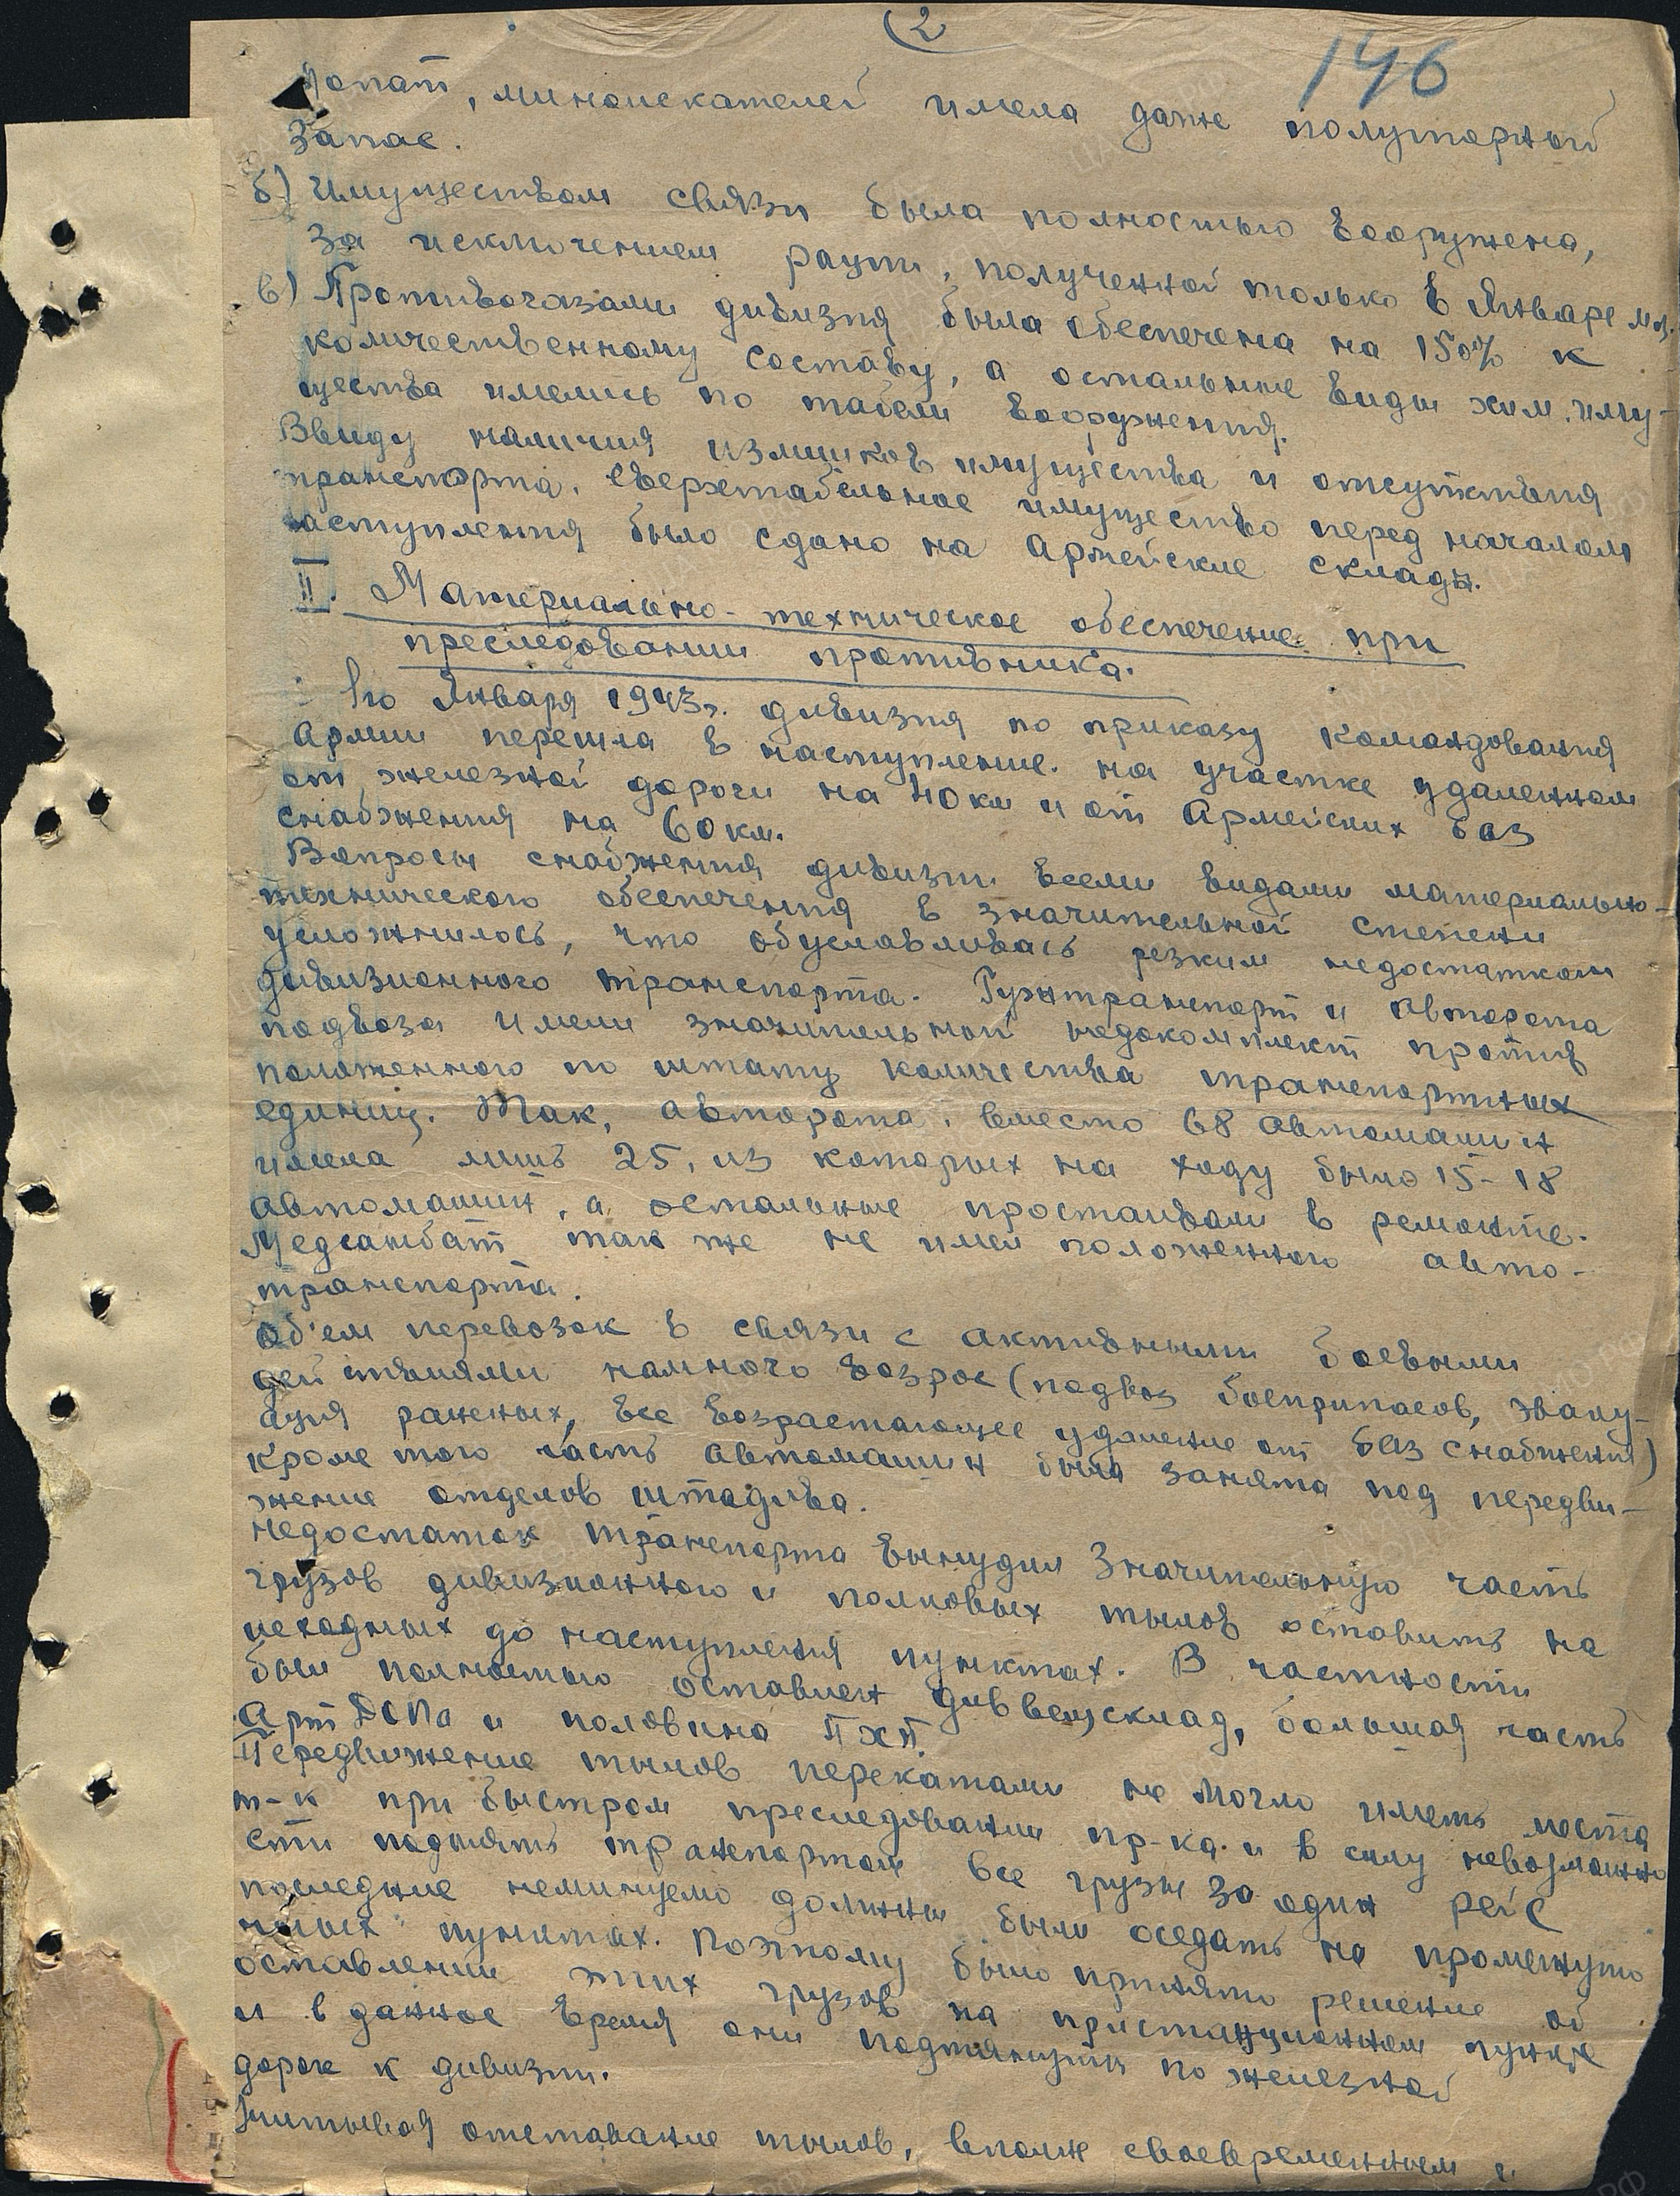 2
146
лопат, миноискателей имела даже полуторный
запас.
б) Имуществом связи была полностью вооружена,
за исключением рации, полученной только в Январе м-це.
в) Противогазами дивизия была обеспечена на 150% к
количественному составу, а остальные виды хим. иму-
щества имелись по табели вооружения.
Ввиду наличия излишков имущества и отсутствия
транспорта, сверхтабельное имущество перед началом
наступления было сдано на Армейские склады.
II. Материально-техническое обеспечение при
преследовании противника.
Января 1943г. дивизия по приказу командования
Армии перешла в наступление на участке удаленном
от железной дороги на 40 км и от Армейских баз
снабжения на 60 км.
Вопросы снабжения дивизии всеми видами материально-
технического обеспечения в значительной степени
усложнилось, что обуславливась резким недостатком
дивизионного транспорта. Гужтранспорт и Авторота
подвоза имели значительный недокомплект против
положенного по штату количества транспортных
единиц. Так, авторота, вместо 68 автомашин
имела лишь 25, из которых на ходу было 15-18
автомашин, а остальные простаивали в ремонте.
Медсанбат так же не имел положенного авто-
транспорта.
Об'ем перевозок в связи с активными боевыми
действиями намного возрос (подвоз боеприпасов, эваку-
ация раненых, все возрастающее удаление от баз снабжения)
Кроме того часть автомашин была занята под передви-
жение отделов штадива.
Недостаток транспорта вынудил значительную часть
грузов дивизионного и полковых тылов оставить на
исходных до наступления пунктах. В частности
был полностью оставлен диввещсклад, большая часть
Арт ДОПа и половина ПХП.
Передвижение тылов перекатами не могло иметь места
т-к при быстром преследовании пр-ка и в силу невозможно
сти поднять транспортом все грузы за один рейс
последние неминуемо должны были оседать на промежуто
чных пунктах. Поэтому было принято решение об
оставлении этих грузов на пристанционном пункте
и в данное время они подтянуты по железной
дороге к дивизии.
Учитывая отставание тылов, вполне своевременным и